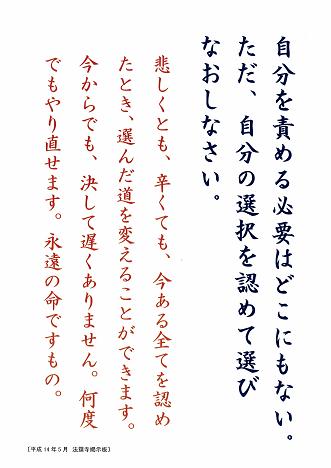 自分を責める必要はどこにもない。
ただ、自分の選択を認めて選び
なおしなさい。
悲しくとも、辛くても、今ある全てを認め
たとき、選んだ道を変えることができます。
今からでも、決して遅くありません。何度
でもやり直せます。永遠の命ですもの。
［平成14年5月 法鏡寺掲示板］